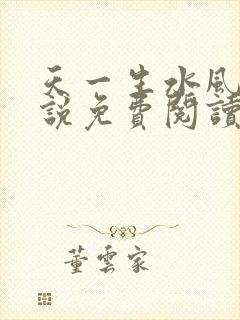 天一生水風
說免費閱讀
董雲家